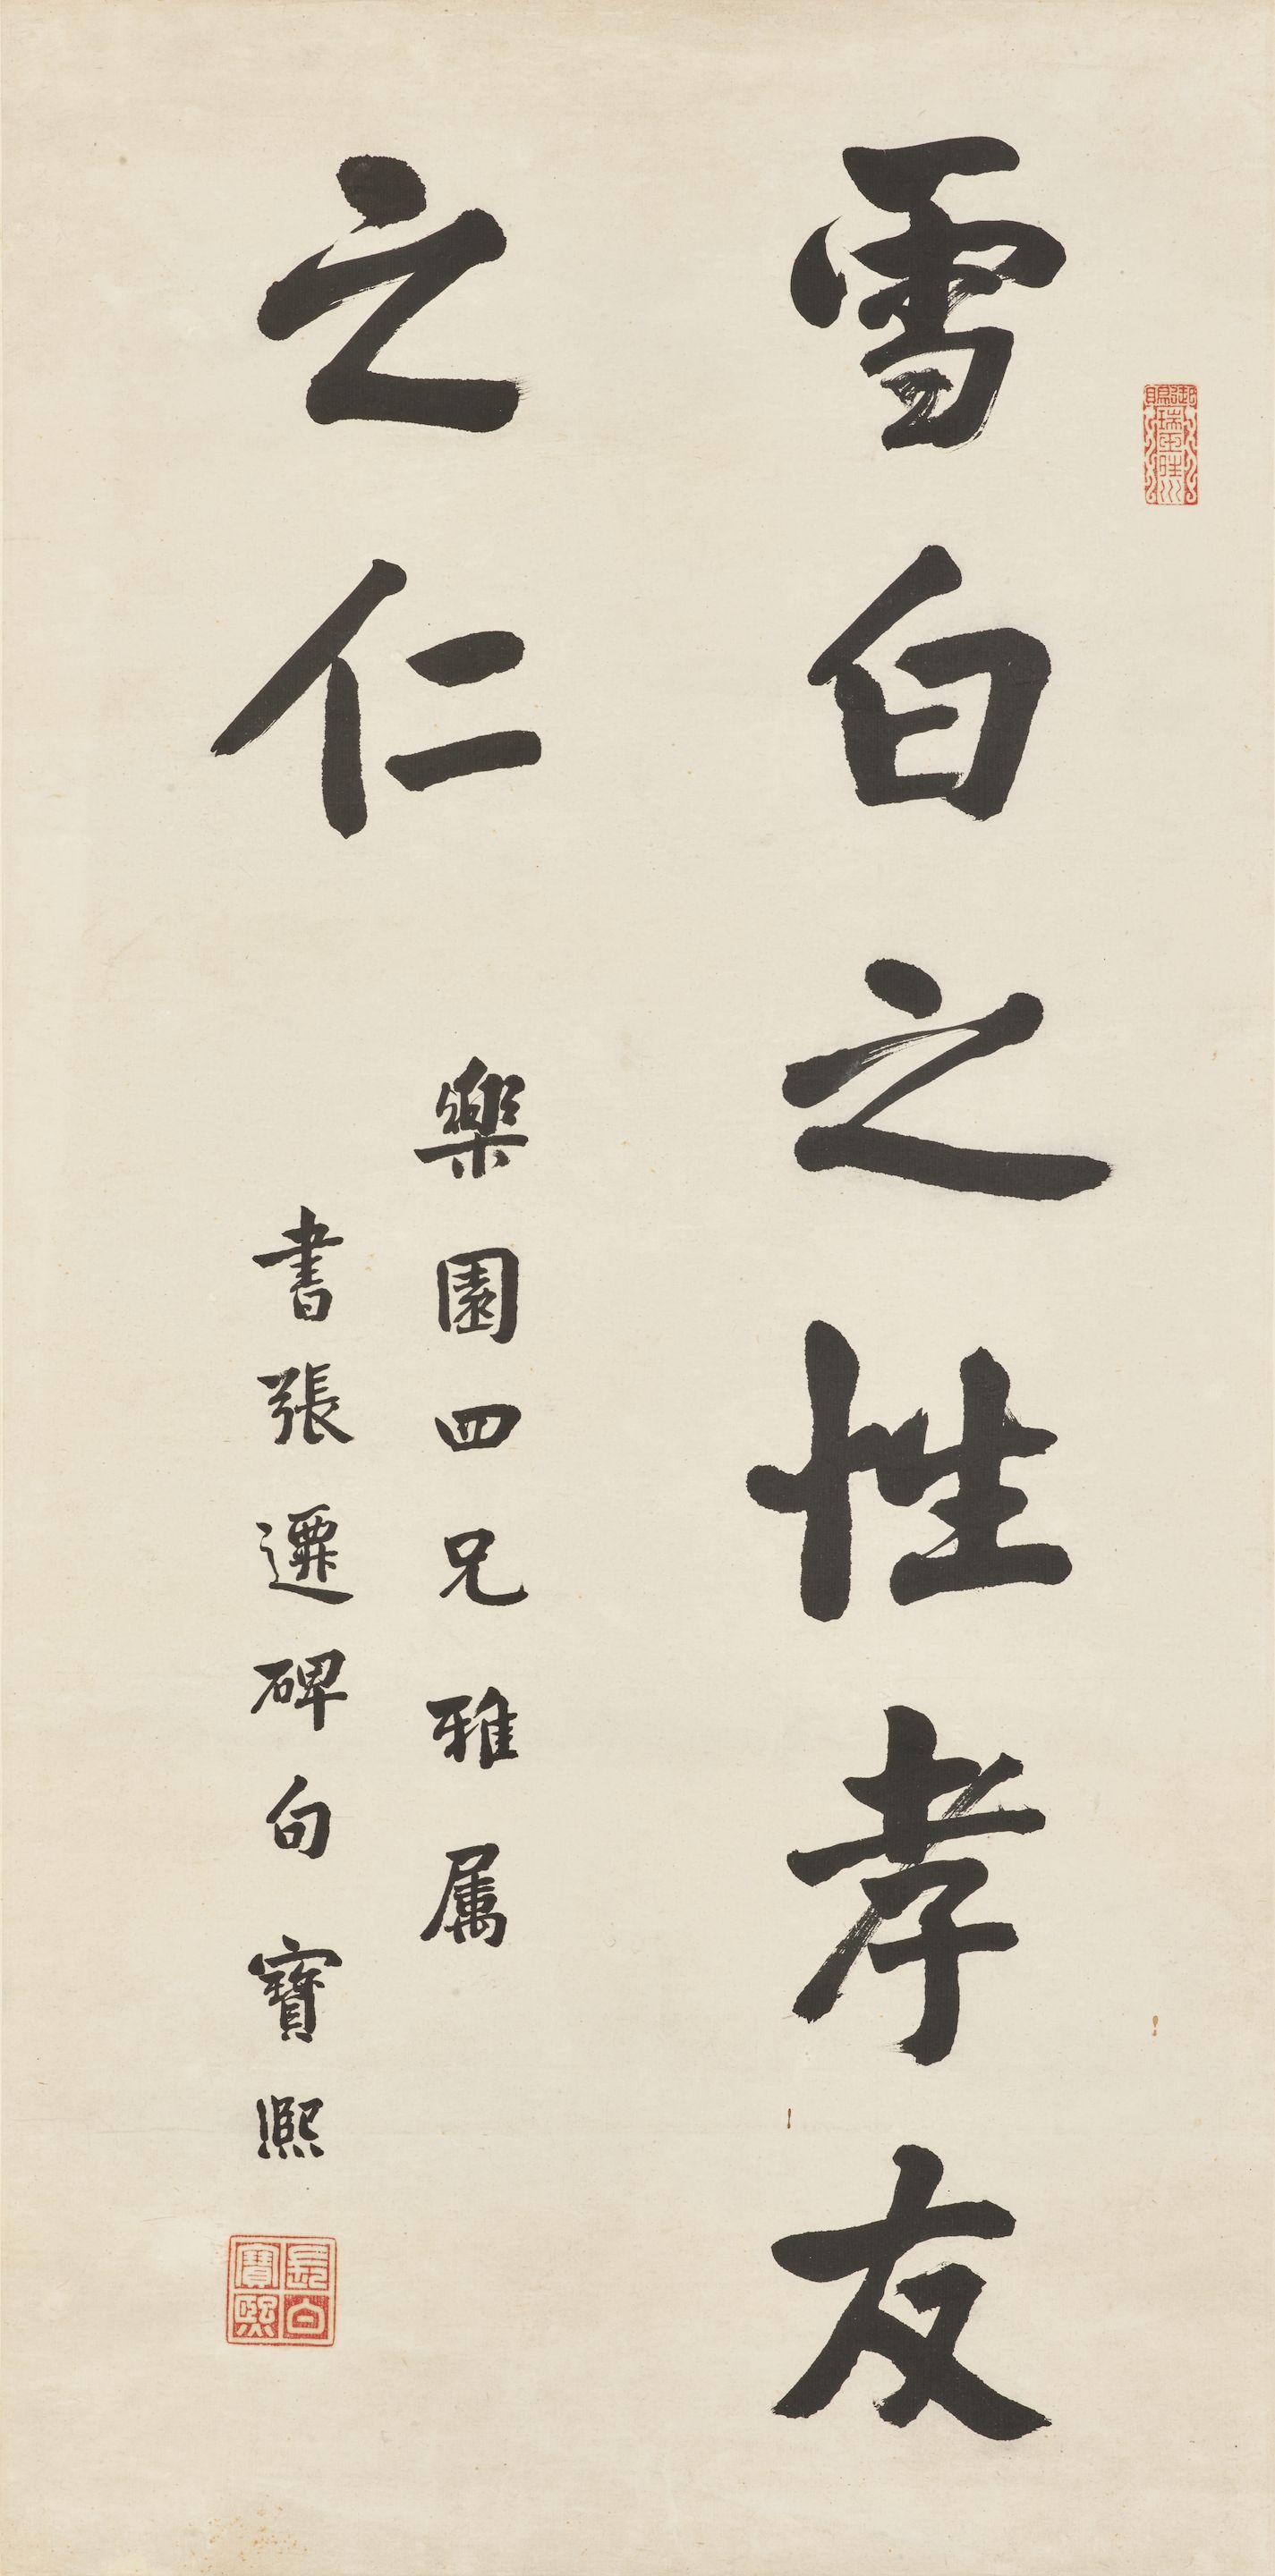 雪白之性孝友
之仁
樂園四兄雅属
書張遷碑句 寶熙
長白寶熙